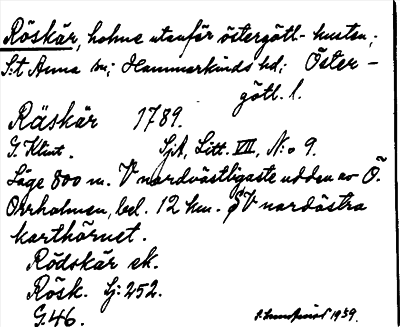 Röskär, holme utanför östergötl. kusten;
S:t Anna sn; Hammarkinds hd; Öster-
götl. l.
Räskär 1789.
G. Klint. SjA, Litt. VIII, N:o 9.
Läge 800 m. V nordvästligaste udden av Ö.
Orrholmen, bel. 12 km. SV nordöstra
karthörnet.
Rödskär ek.
Rösk. Sj: 252.
G.46. 1939.